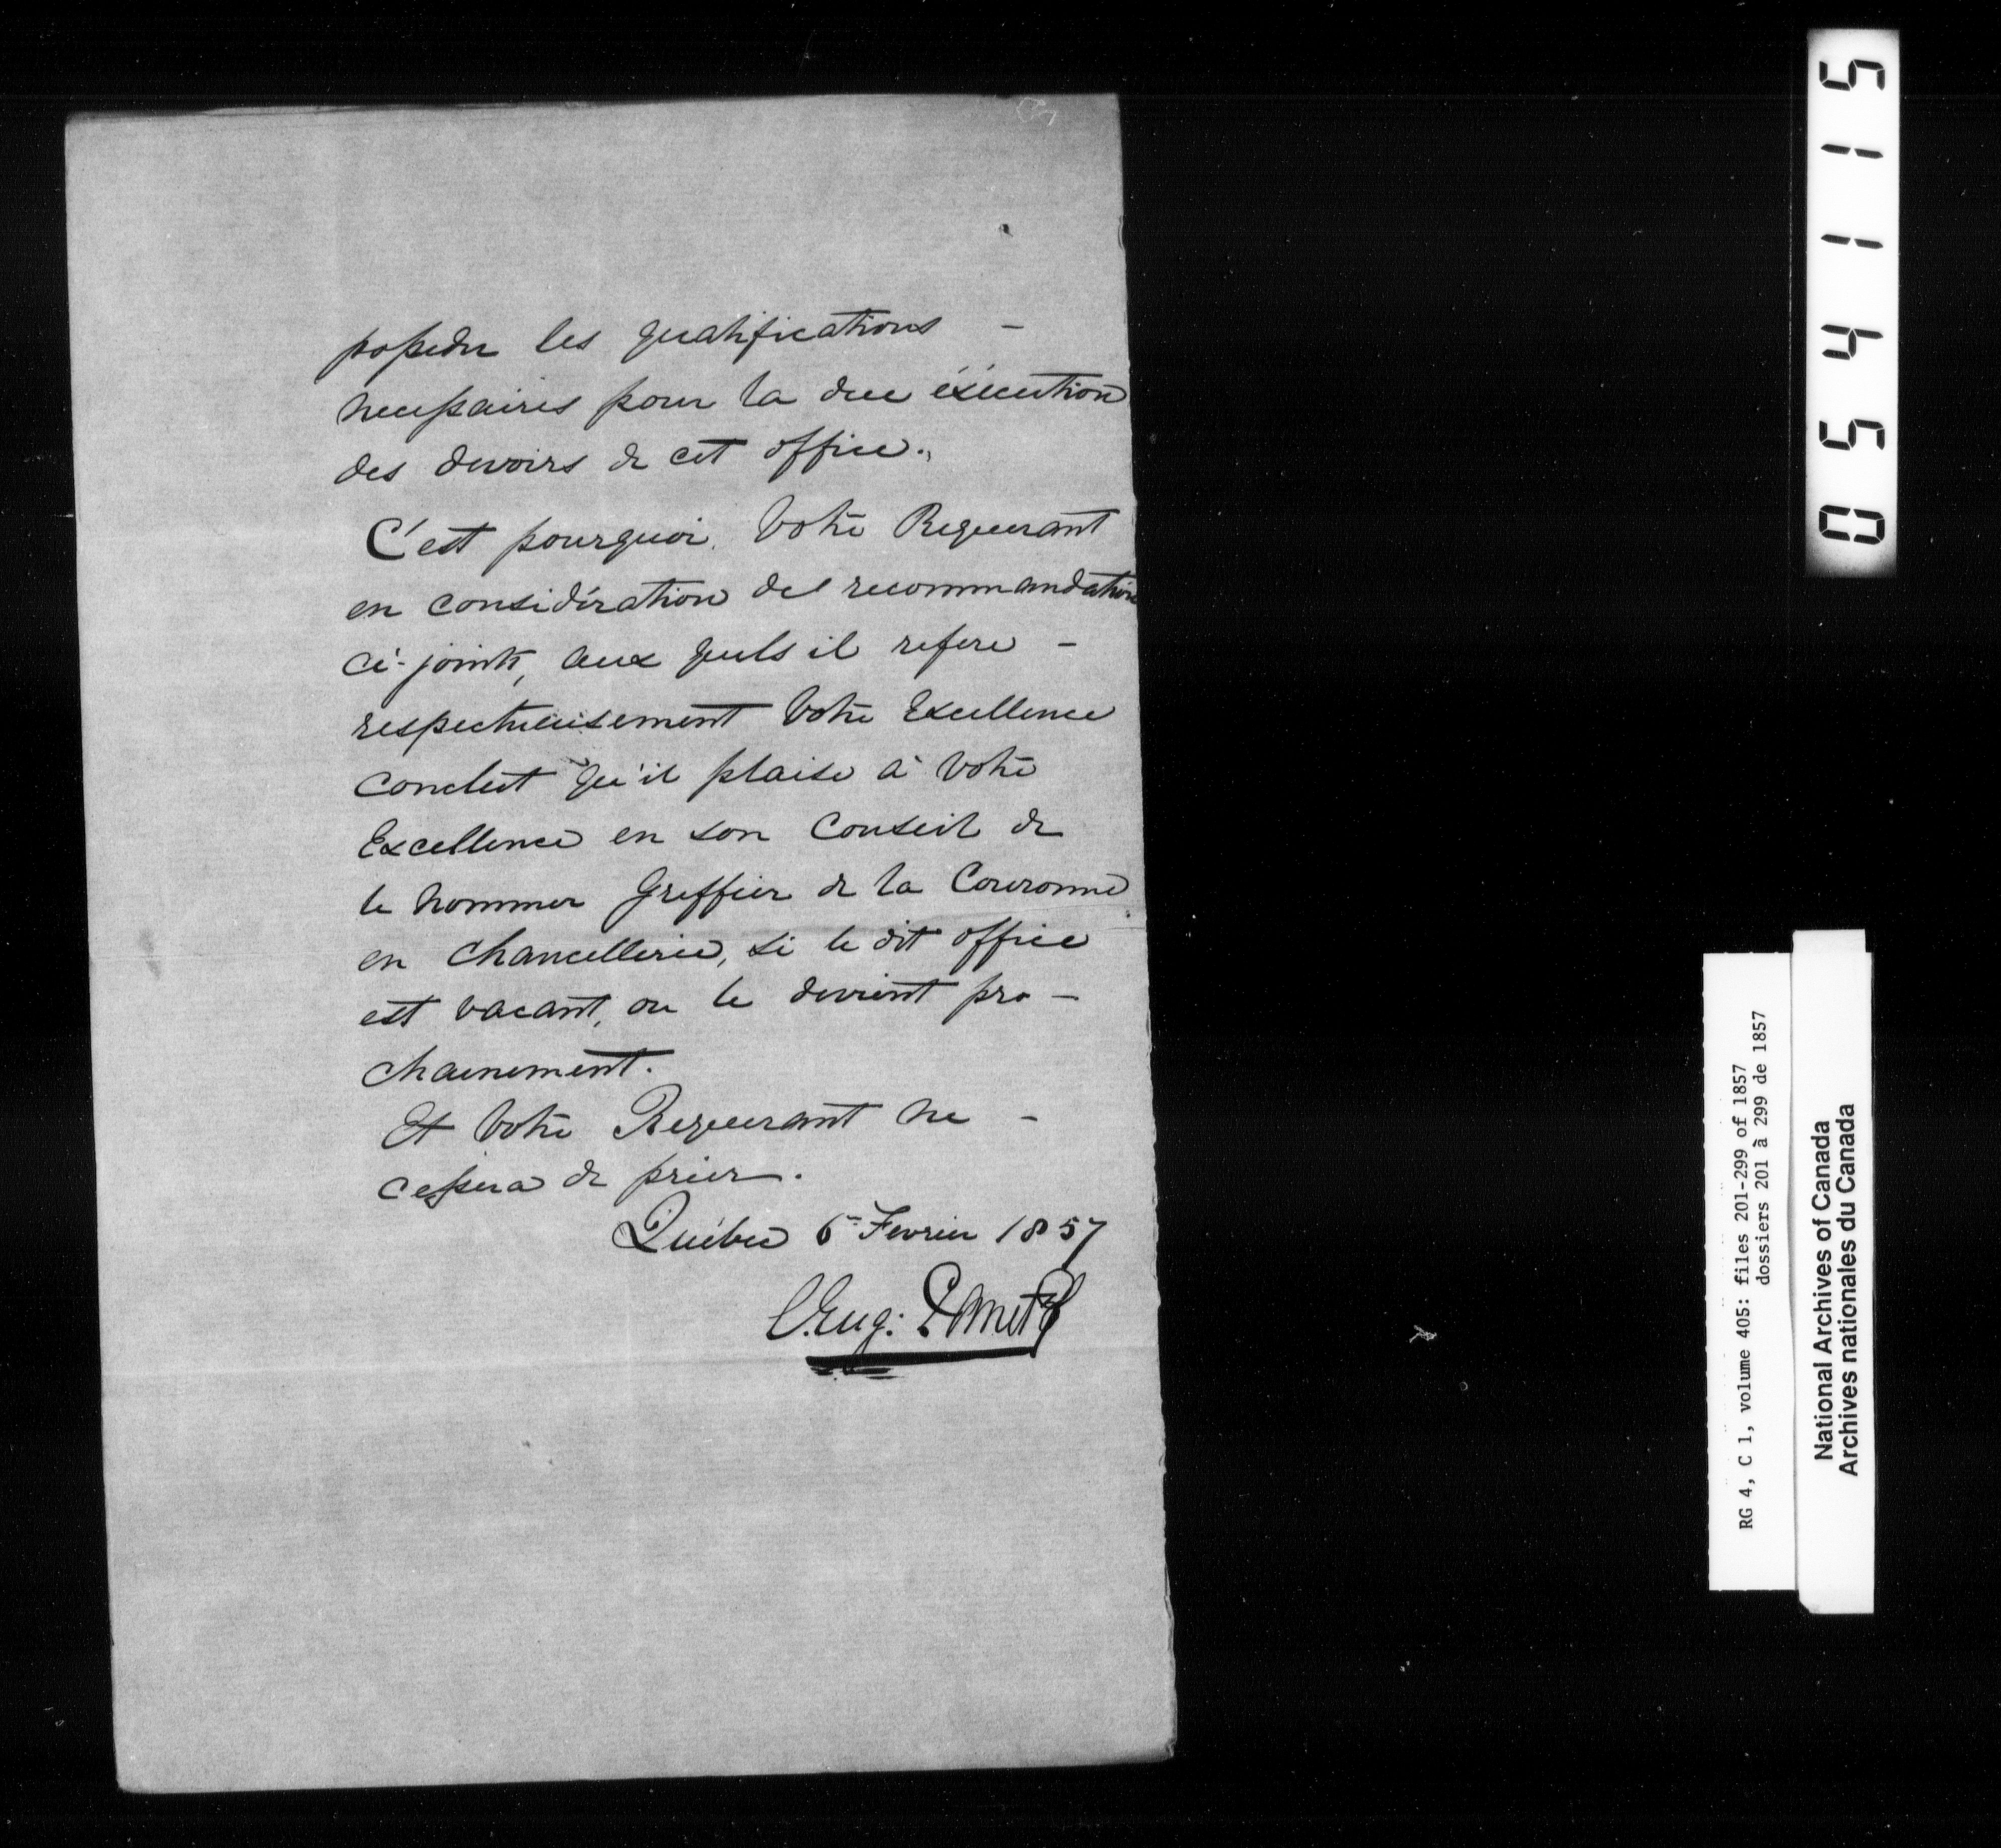 posseder les qualifications -
necessaires pour la due éxécution
des devoirs de cet office.,
C'est pourquoi, Votre Requerant
en considération des recommandations
ci-joints, aux quels il refere -
respectueusement Votre Excellence
conclut qu'il plaise à Votre
Excellence en son Conseil de
le nommer Greffier de la Couronne
en Chancellerie, si le dit office
est vacant, ou le devient pro -
chainement.
Et Votre Requerant ne -
cessera de prier.
Québec 6 Fevrier 1857
C. Eug: Panet
054115
RG 4, C 1, volume 405: files 201-299 of 1857
dossiers 201 à 299 de 1857
National Archives of Canada
Archives nationales du Canada